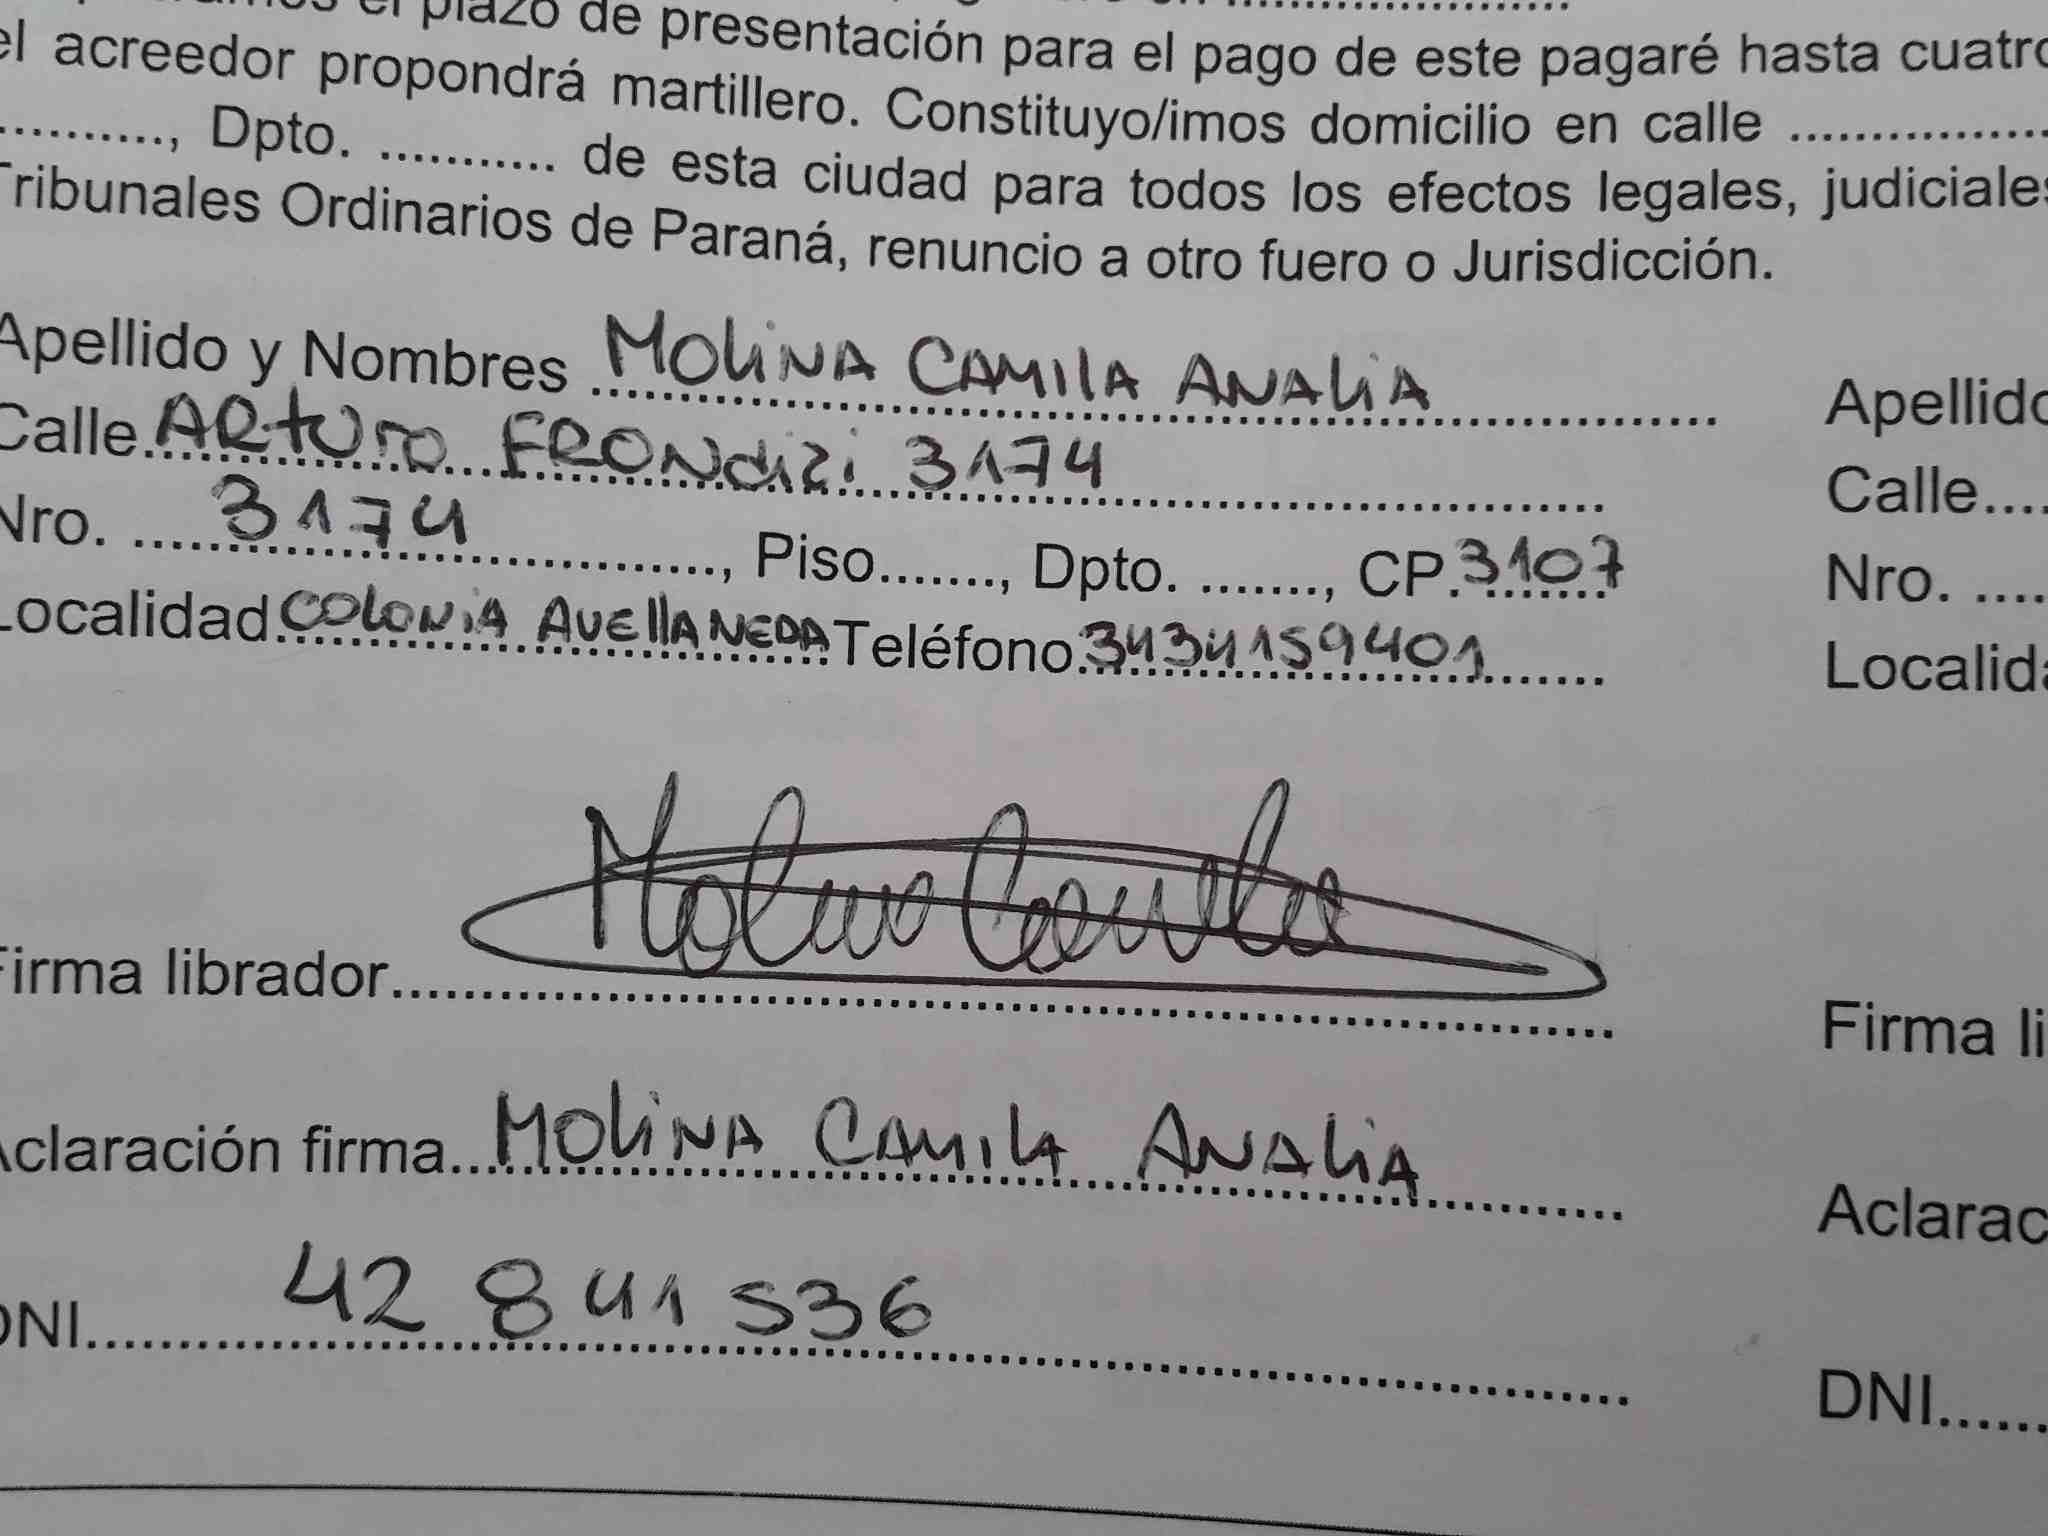 el plazo de presentación para el pago de este pagaré hasta cuatro
el acreedor propondrá martillero. Constituyo/imos domicilio en calle ................
..........., Dpto. ........... de esta ciudad para todos los efectos legales, judiciales
Tribunales Ordinarios de Paraná, renuncio a otro fuero o Jurisdicción.
Apellido y Nombres MOLINA CAMILA ANALIA Apellido
Calle ARTURO FRONDIZI 3174 Calle....
Nro. 3174, Piso......., Dpto. ......., CP. 3107 Nro. ....
Localidad COLONIA AVELLANEDA Teléfono 3434159401 Localida
Firma librador Molina Camila Firma li
Aclaración firma MOLINA CAMILA ANALIA Aclarac
DNI 42 841 536 DNI......